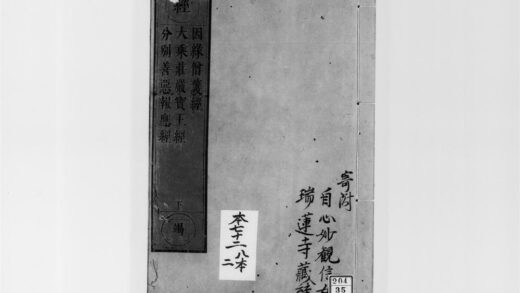 經
因緣僧護經
大乘莊嚴寳王經
分別善惡報應經
下
竭
寄附
自心妙觀信女
瑞蓮寺藏
本七十二八本
二
204
35